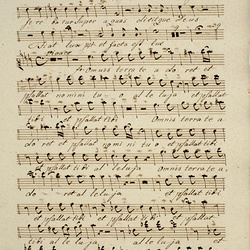 fere ba tur Super aquas dixitque Deus
Fiat lux et facta est lux
Omnis terra te a do ret et
psallat nomini tu o al le lu ja et psallat
tibi et psallat tibi Omnis terra te a
do ret et psallat no mi ni tu o et psallat tibi
et psallat tibi al le luja Omnis terra te a
do ret al le luja et psallat tibi
et psallat tibi et psallat
tibi al le lu ja al le luja